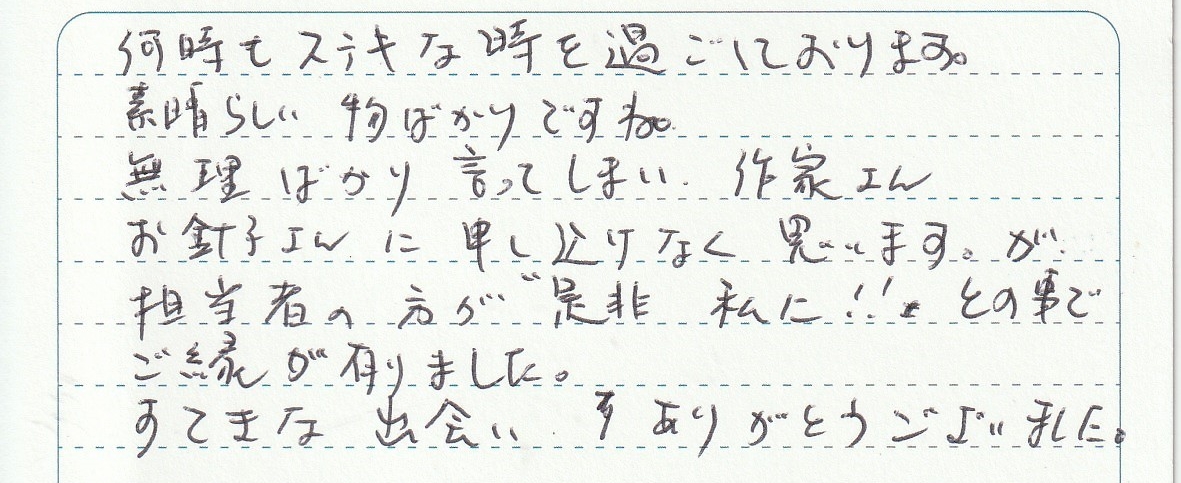 何時もステキな時を過ごしております。
素晴らしい物ばかりですね。
無理ばかり言ってしまい、作家さん
お針子さんに申し込けなく思います。が
担当者の方が"是非 私に!!〟との事で
ご縁が有りました。
すてきな出会い ありがとうございました。